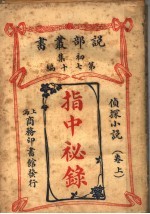 說部叢書
初集
第七十編
偵探小說
(卷上)
指中祕錄
上海商務印書館發行